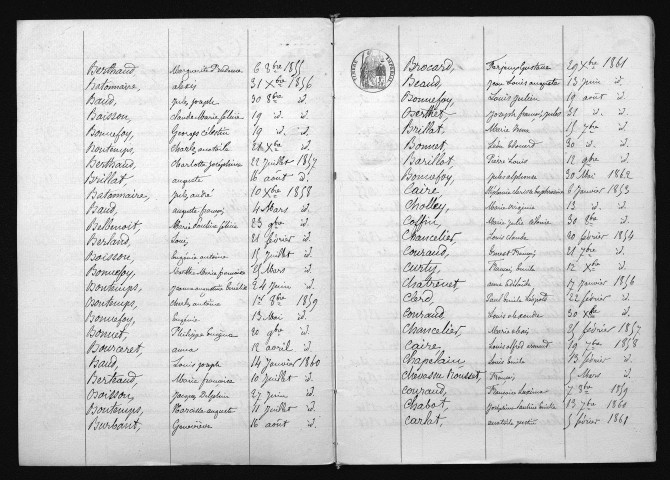 Berthaud Marguerite 6 8bre 1855
Batonnaire, alexis 31 Xbre 1856
Baud, jules joseph 30 8bre d.
Boisson, claude Marie félicie 19 d. d.
Bonnefoy, Georges célestin 19 d. d.
Bontemps, Charles anatoile 26 Xbre d.
Berthaud, Charlotte joséphine 22 juillet 1857
Brillat, auguste 16 août d.
Batonnaire, jules andré 10 Xbre 1858
Baud, auguste françois 4 Mars d.
Bellenoit, Marie 23 9bre d.
Berland, Louis 21 février d.
Boisson, Eugénie antoine 15 juillet d.
Bonnefoy, Marie françoise 25 Mars d.
Bontemps, 24 juin d.
Bontemps, charles antoine 1er 8bre 1859
Bonnefoy, Eugène 13 Mai d.
Bonnet, Philippe Eugène 20 9bre d.
Bourceret, anna 12 avril d.
Baud, Louis joseph 14 janvier 1860
Berthaud, Marie françoise 10 juillet d.
Boisson, jacques Delphin 27 juin d.
Bontemps, Marcelle auguste 11 juillet d.
Burbant, Geneviève 16 août d.
Brocard, Gustave 29 Xbre 1861
Beaud, jean Louis auguste 13 juin d.
Bonnefoy, Louis julien 19 août d.
Berthet, joseph françois jules 31 d. d.
Brillat, Marie 15 7bre d.
Bonnet, Léon Edouard 30 d. d.
Barillat, Pierre Louis 12 9bre d.
Bonnefoy, jules alphonse 30 Mai 1862
Caire 6 janvier 1853
Cholley, Marie virginie 13 d. d.
Coffin, Marie julie 30 8bre d.
Chancelier, Louis claude 20 février 1854
Couraud, Ernest françois 21 7bre d.
Curty, francis Emile 12 Xbre d.
Chatrenet anne adélaïde 17 janvier 1856
Clerd, Paul Emile Léopold 22 février d.
Couraud, Louis alexandre 30 Xbre d.
Chancelier, Marie 25 février 1857
Caire, Louis alfred 19 7bre 1858
Chapelain Louis Emile 13 février d.
Chevassu Rousset, françois 5 Mars d.
Couraud, françoise 7 8bre 1859
Chabot, joséphine 13 7bre 1860
Carlat, anatoile 5 février 1861